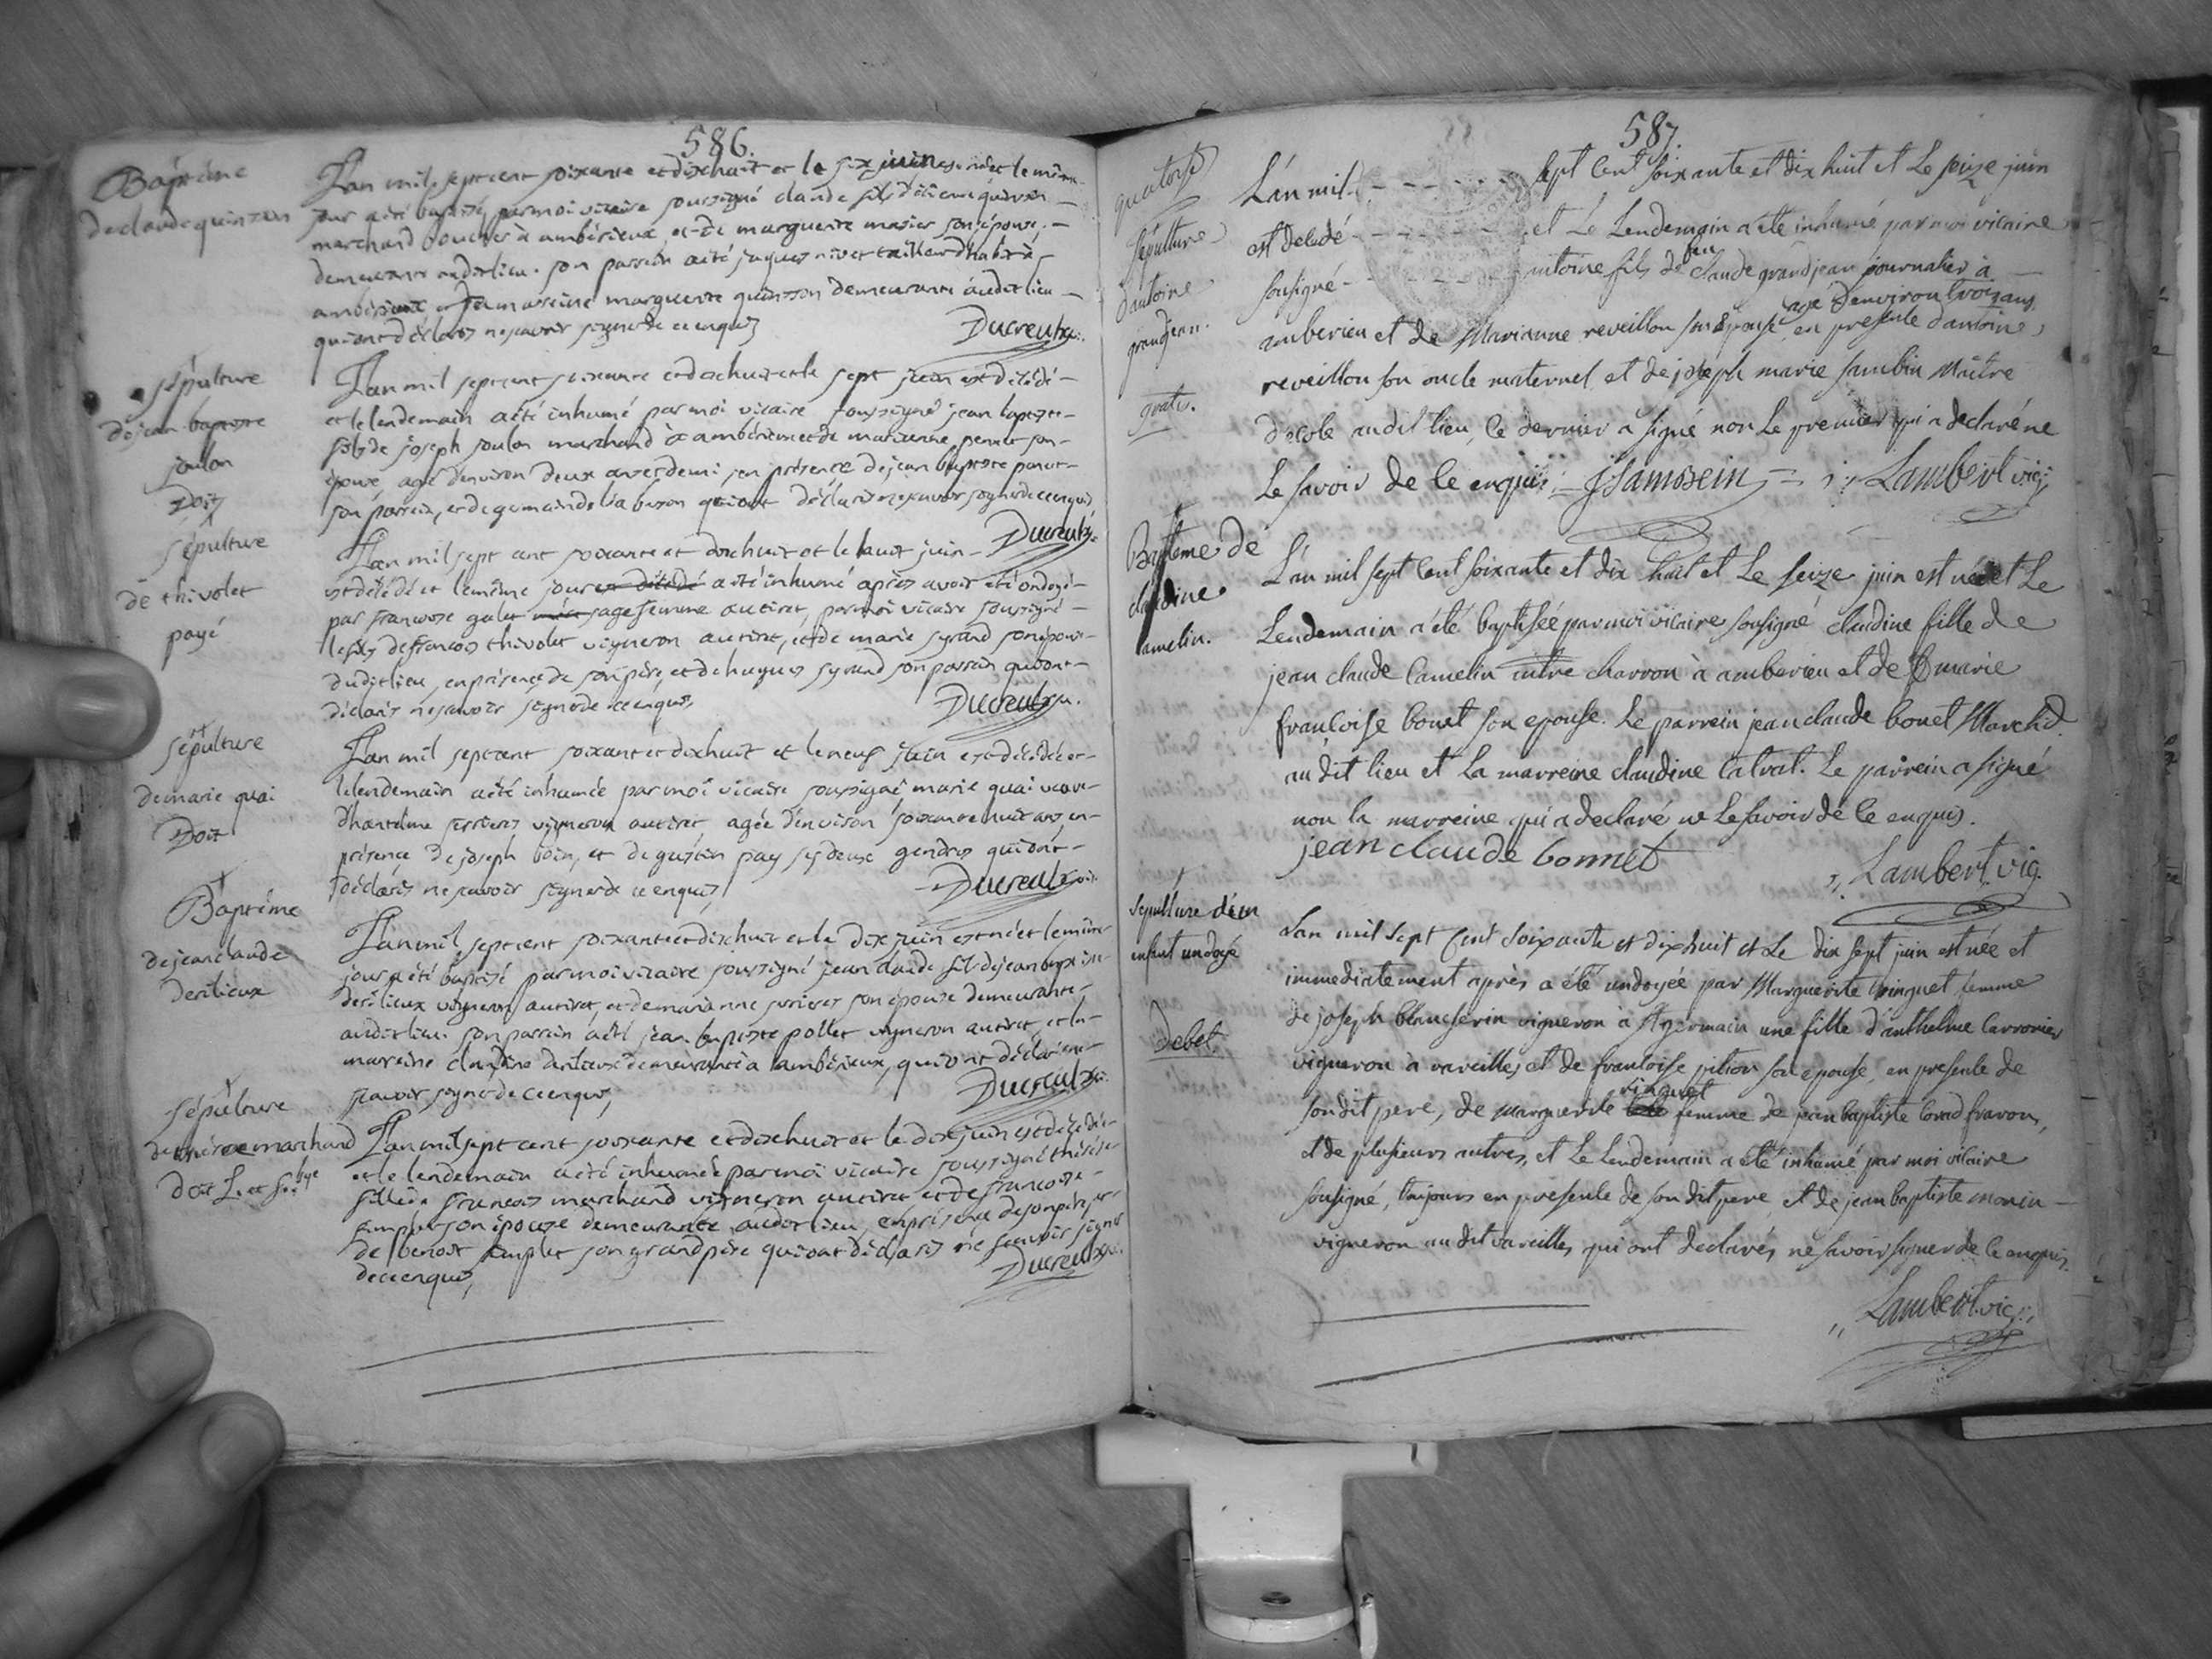 586.
Baptême
de claude quinson
L'an mil sept cent soixante et dixhuit et le six juin est né et le même
jour a été baptisé par moi vicaire soussigné claude fils d'étienne quinson
marchand boucher à ambérieux et de marguerite masier son épouse
demeurans audit lieu. son parrain a été jaques nivet tailleur d'habit à
ambérieux et sa marreine marguerite quinson demeurante audit lieu
qui ont déclarés ne savoir signer de ce enquis
Ducreux vic.
sépulture
de jean baptiste
joulon
Doit
L'an mil sept cent soixante et dixhuit et le sept juin est décédé
et le lendemain a été inhumé par moi vicaire soussigné jean baptiste
fils de joseph joulon marchand à ambérieux et de marianne penet son
épouse, agé d'environ deux ans et demi, en présence de jean baptiste penet
son parrein, et de qui ont déclarés ne savoir signer de ce enquis
Ducreux vic.
sépulture
de thivolet
payé
L'an mil sept cent soixante et dixhuit et le huit juin
est décédé et le même jour est décédé a été inhumé après avoir été ondoyé
par françoise galet sage femme au tiret, par moi vicaire soussigné
le fils de françois thivolet vigneron au tiret, et de marie syrand son épouse
dudit lieu, en présence de son père, et de hugues syrand son parrain qui ont
déclarés ne savoir signer de ce enquis,
Ducreux vic.
sépulture
de marie quai
Doit
L'an mil sept cent soixante et dixhuit et le neuf juin est décédée et
le lendemain a été inhumée par moi vicaire soussigné marie quai veuve
d'hantelme serrieres vigneron au tiret, agée d'environ soixante huit ans, en
présence de joseph boin, et de gustin pay ses deux gendres qui ont
déclarés ne savoir signer de ce enquis,
Ducreux vic.
Baptême
de jean claude
derilieux
L'an mil sept cent soixante et dixhuit et le dix juin est né et le même
jour a été baptisé par moi vicaire soussigné jean claude fils de jean baptiste
derilieux vigneron au tiret, et de marianne serrieres son épouse demeurante
audit lieu. son parrain a été jean baptiste pollet vigneron au tiret, et la
marreine claudine demeurante à ambérieux, qui ont déclaré ne
savoir signer de ce enquis,
Ducreux vic.
sépulture
de thérèse marchand
doit L. et S. lye
L'an mil sept cent soixante et dixhuit et le dix juin est décédée
et le lendemain a été inhumée par moi vicaire soussigné thérèse
fille de françois marchand vigneron au tiret, et de françoise
simplet son épouse demeurante audit lieu, en présence de son père, et
de benoit simplet son grand père qui ont déclarés ne savoir signer
de ce enquis,
Ducreux vic.
587.
quatorse
sépulture
d'antoine
grandjean.
gratis.
L'an mil - - - - - sept cent soixante et dix huit et Le seize juin
est decedé - - - - - et Le Lendemain a été inhumé par moi vicaire
sousigné - - - - - antoine fils de feu claude grandjean journalier à
amberieu et de Marianne reveillon son épouse agé d'environ trois ans, en presence d'antoine
reveillon son oncle maternel et de joseph marie sambin Maître
d'ecole audit lieu, ce dernier a signé non Le premier qui a declaré ne
Le savoir de ce enquis.
Lambert vic.
Baptême de
claudine
camelin.
L'an mil sept cent soixante et dix huit et Le seize juin est née et Le
Lendemain a été baptisée par moi vicaire sousigné claudine fille de
jean claude Camelin maître charron à amberieu et de marie
françoise bonet son epouse. Le parrein jean claude bonet Marchd.
au dit lieu et La marreine claudine Catrat. Le parrein a signé
non la marreine qui a declaré ne Le savoir de ce enquis.
jean claude bonnet
Lambert vic.
sepulture d'un
enfant undoyé
Debet.
L'an mil sept Cent soixante et dixhuit et Le dix sept juin est née et
immediatement après a été undoyée par Marguerite vinguet femme
de joseph blancherin vigneron à St germain une fille d'anthelme Carronier
vigneron à vareilles, et de françoise pition son epouse, en presence de
son dit pere, de marguerite vinguet femme de jean baptiste fravon,
et de plusieurs autres, et Le Lendemain a été inhumé par moi vicaire
sousigné, toujours en presence de son dit pere et de jean baptiste monin
vigneron au dit vareilles, qui ont declarés ne savoir signer de ce enquis.
Lambert vic.